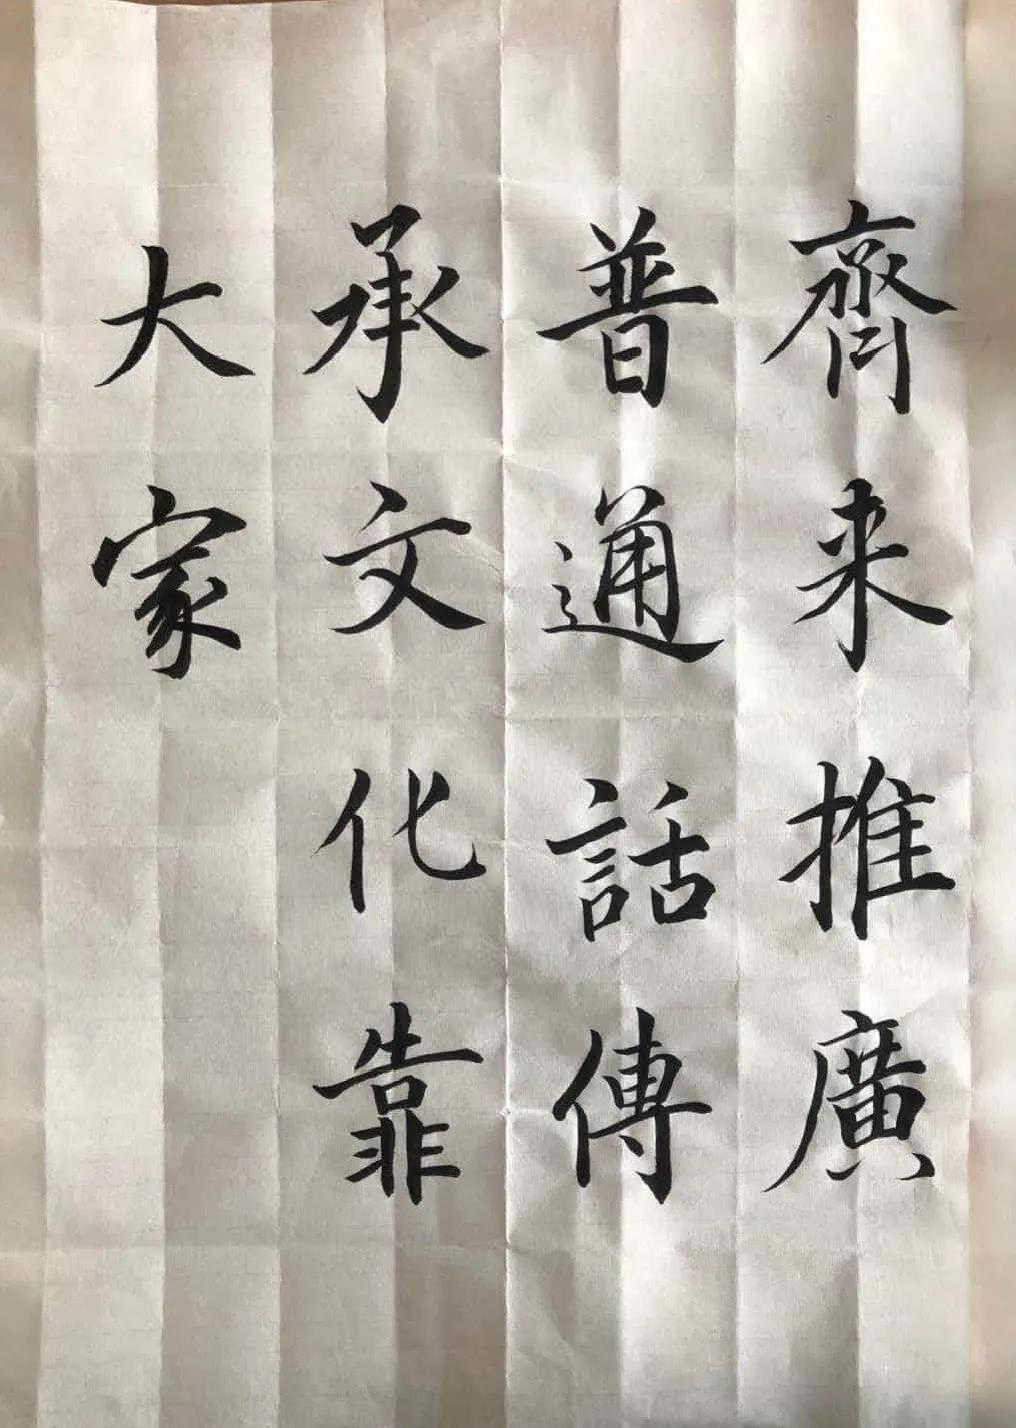 齊来推廣
普通話傳
承文化靠
大家